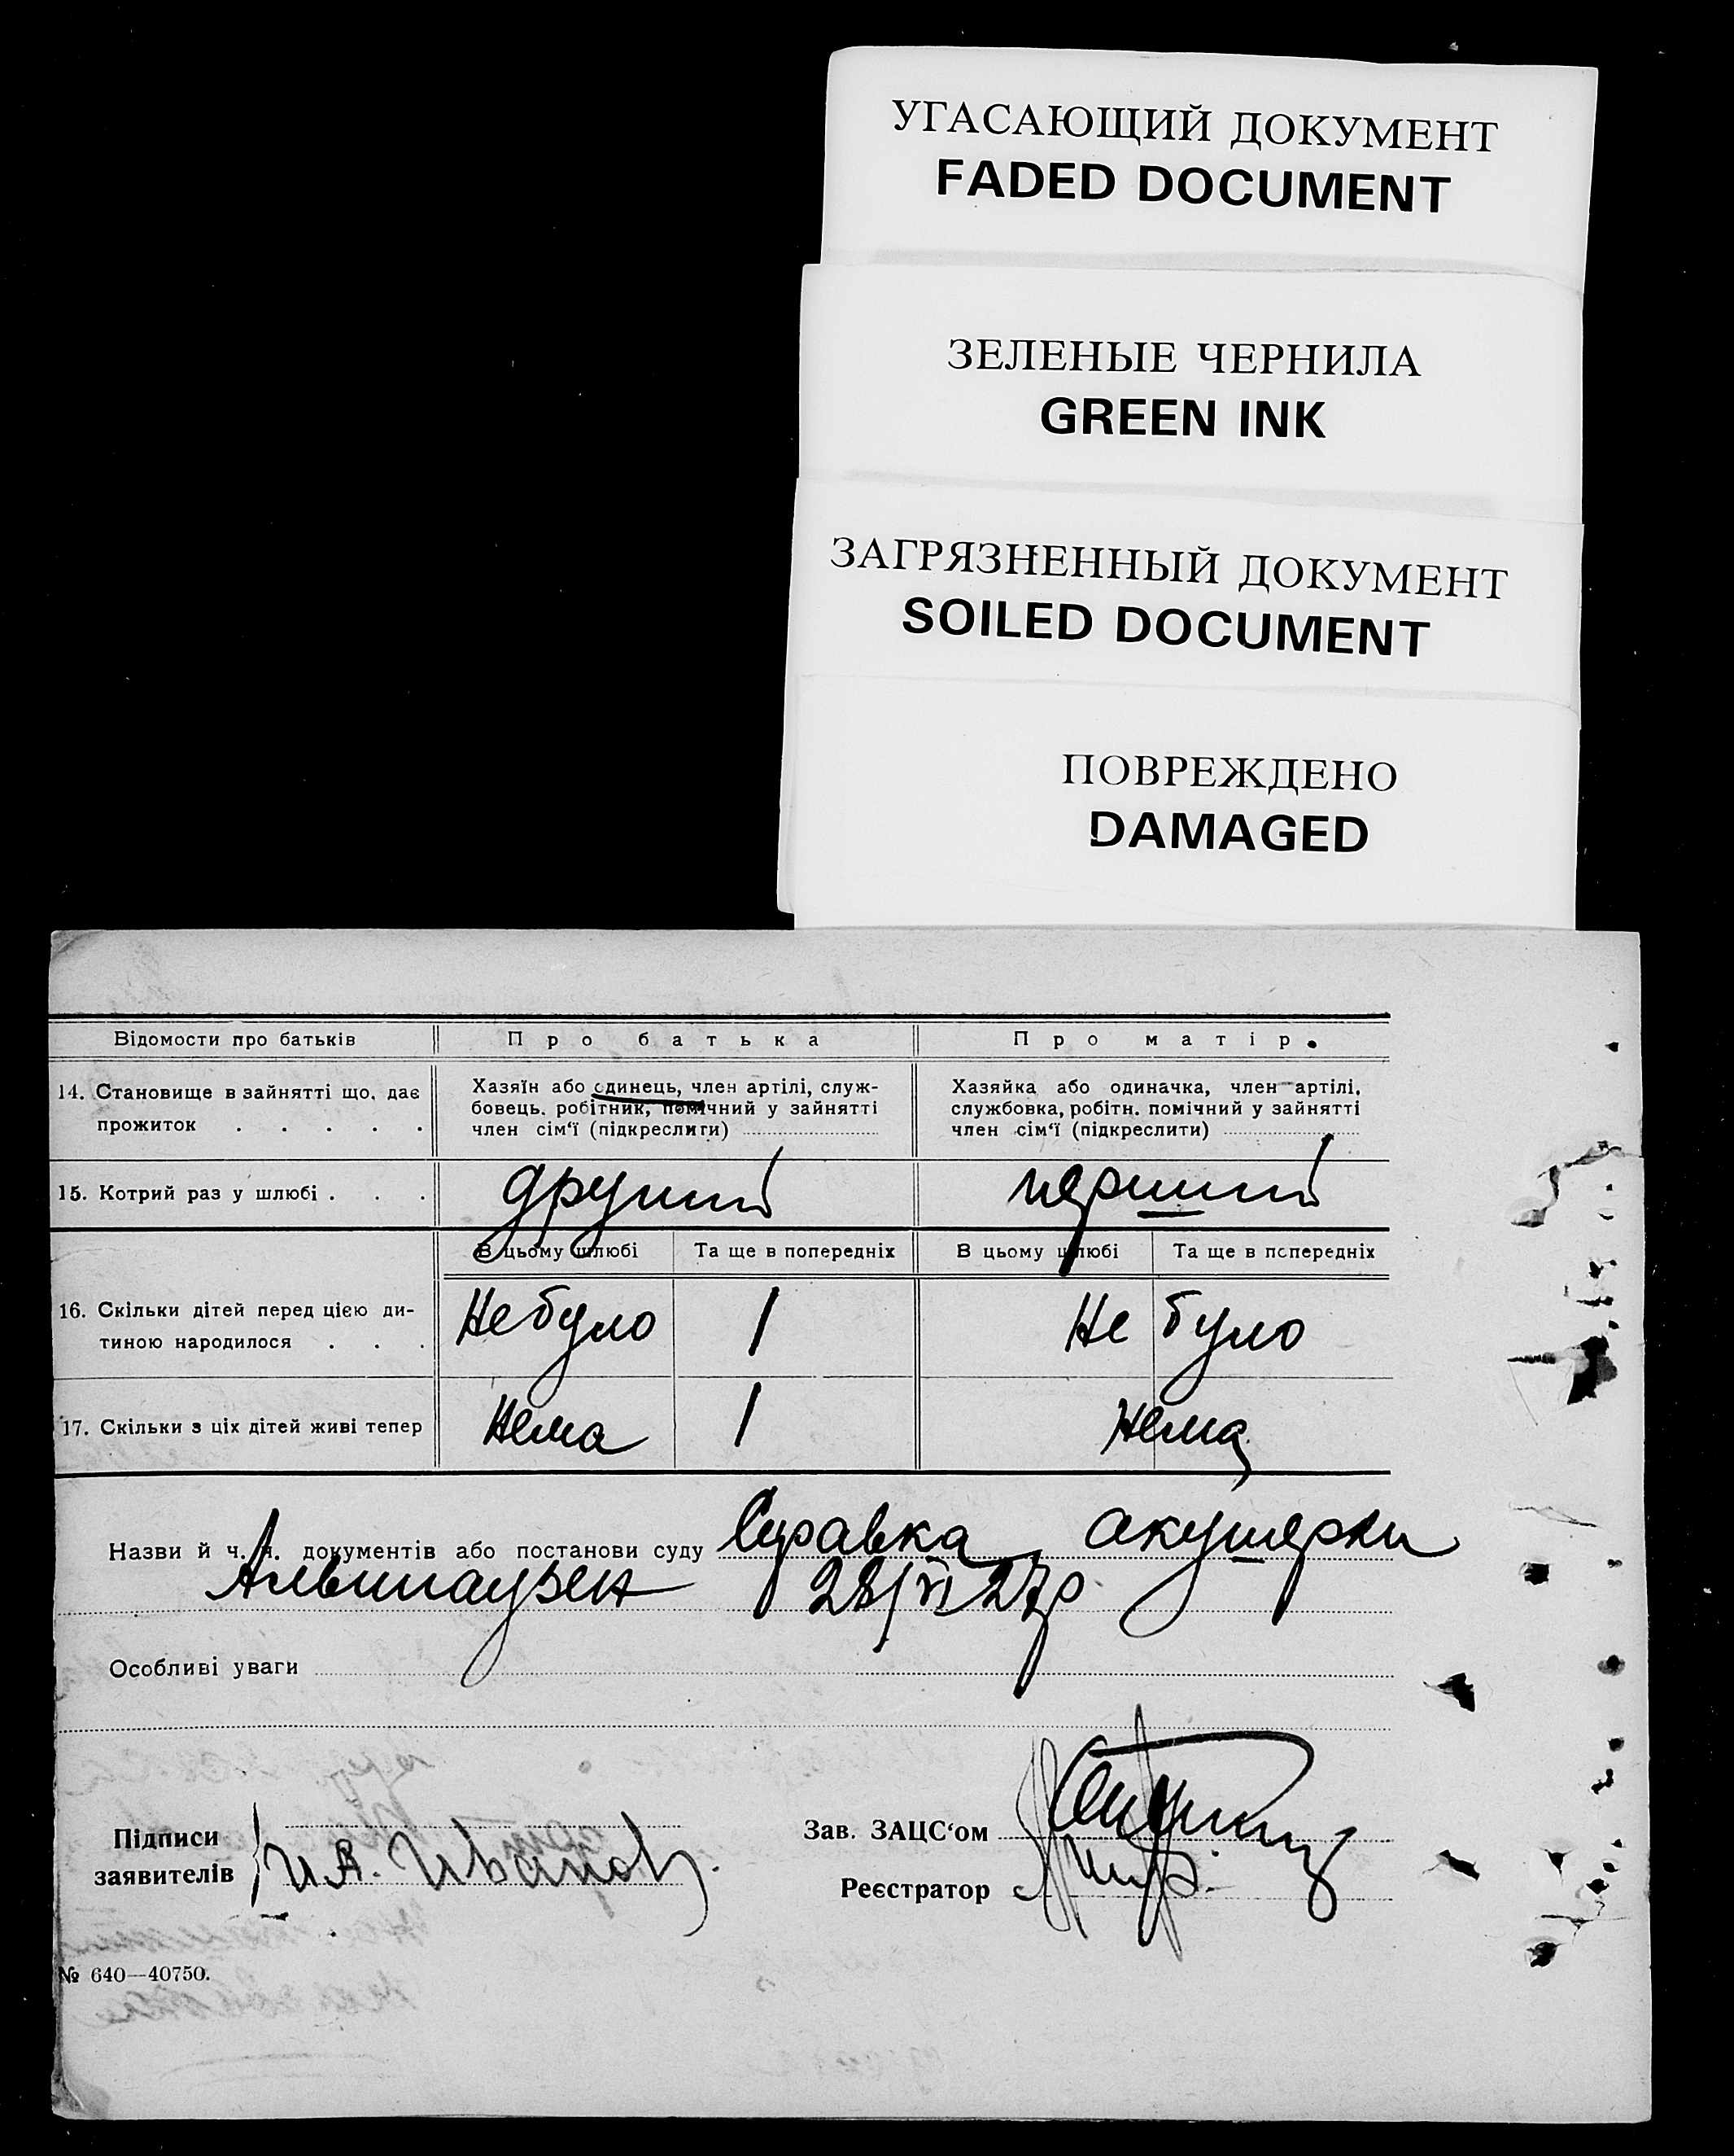 УГАСАЮЩИЙ ДОКУМЕНТ
FADED DOCUMENT
ЗЕЛЕНЫЕ ЧЕРНИЛА
GREEN INK
ЗАГРЯЗНЕННЫЙ ДОКУМЕНТ
SOILED DOCUMENT
ПОВРЕЖДЕНО
DAMAGED
Відомости про батьків Про батька Про матір.
14. Становище в зайнятті що, дає прожиток . . . . .
Хазяїн або одинець, член артілі, служ-
бовець, робітник, помічний у зайнятті
член сім‘ї (підкреслити)
Хазяйка або одиначка, член артілі,
службовка, робітн. помічний у зайнятті
член сім‘ї (підкреслити)
15. Котрий раз у шлюбі . . . другий перший
В цьому шлюбі Та ще в попередніх В цьому шлюбі Та ще в попередніх
16. Скільки дітей перед цією ди-
тиною народилося . . . Не було 1 Не було
17. Скільки з ціх дітей живі тепер Нема 1 Нема
Назви й ч. ч. документів або постанови суду Справка акушерки
28/VI 27р.
Особливі уваги
Підписи
заявителів И.А. Иванов
Зав. ЗАЦС‘ом
Реєстратор
№ 640—40750.